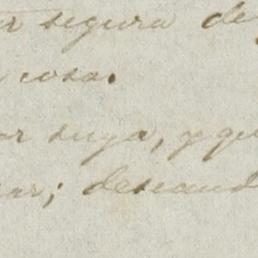 segura de
cosa.
suya, y que
; desean